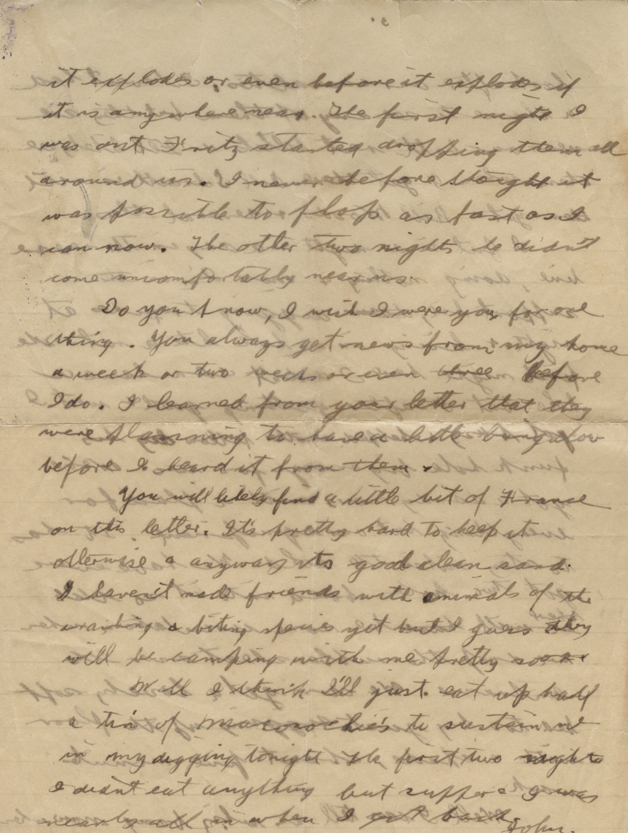 it explodes or even before it explodes if
it is anywhere near. The first night I
was out Fritz started dropping them all
around us. I never before thought it
was possible to flop as fast as I
can now. The other two nights he didn't
come uncomfortably near us.
Do you know, I wish I were you for one
thing. You always get news from my home
a week or two weeks or even three before
I do. I learned from your letter that they
were planning to have a little bungalow
before I heard it from them.
You will likely find a little bit of France
on this letter. It's pretty hard to keep it
otherwise & anyways its good clean sand.
I haven't made friends with animals of the
crawling & biting species yet but I guess they
will be camping with me pretty soon.
Well I think I'll just eat up half
a tin of Maconochie's to sustain me
in my digging tonight the first two nights
I didnt eat anything but supper & I was
nearly all in when I got back
John.